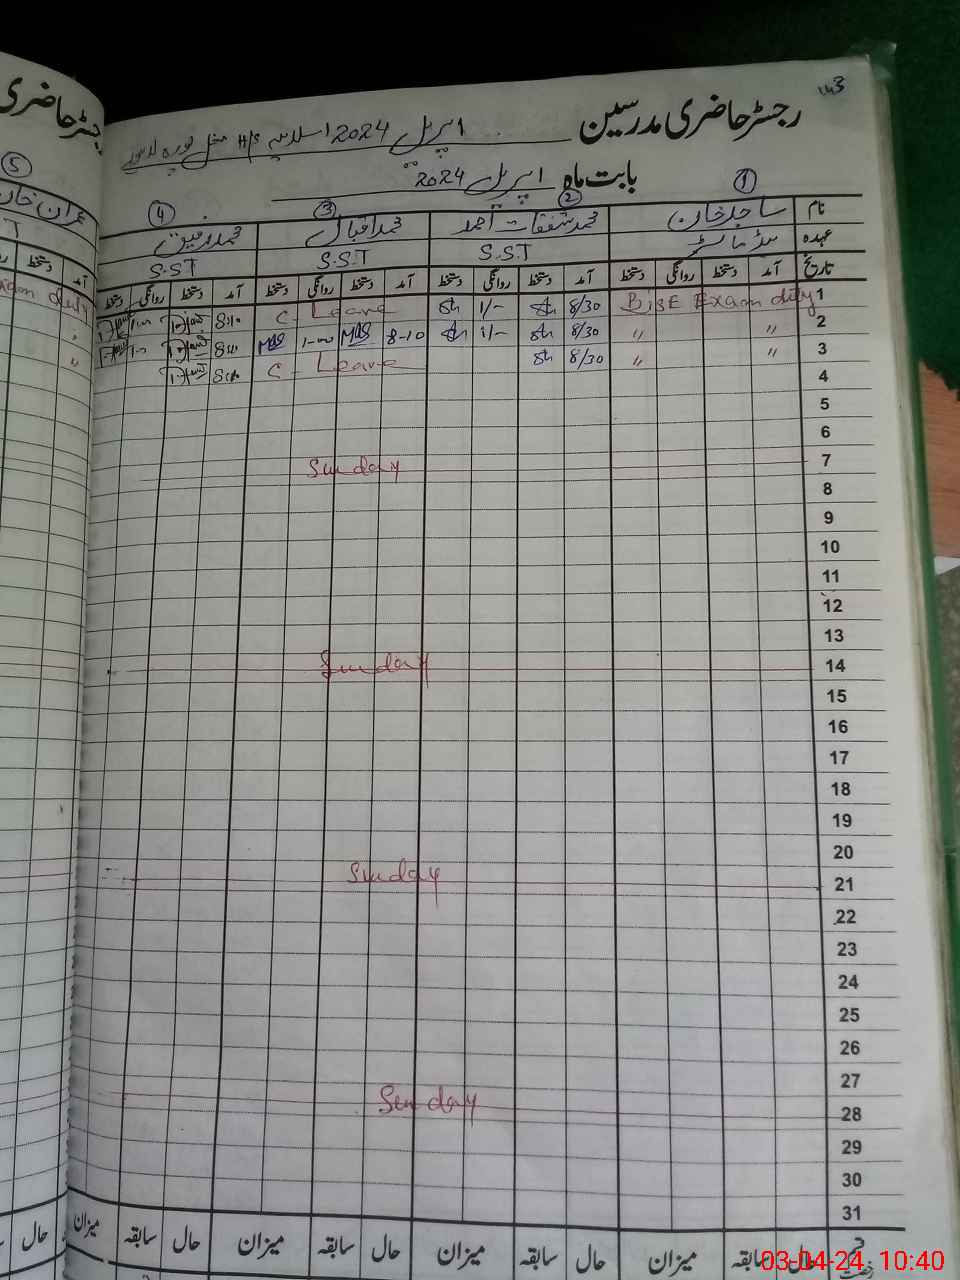 143
رجسٹر حاضری مدرسین اپریل 2024 اسلامیہ H/S مغل پورہ لاہور
بابت ماہ اپریل 2024
نام ① ساجد خان ② محمد شفقات احمد ③ محمد اقبال ④ محمد رفیق ⑤ عمران خان
عہدہ ہیڈ ماسٹر S.S.T S.S.T S.S.T
تاریخ آمد دستخط روانگی دستخط آمد دستخط روانگی دستخط آمد دستخط روانگی دستخط آمد دستخط روانگی دستخط آمد دستخط
1 BISE Exam duty 8/30 Sh 1/- Sh C - Leave 8:10 Exam duty
2 〃 〃 8/30 Sh 1/- Sh 8-10 1-00 8:10
3 〃 〃 8/30 Sh C - Leave 8:10 〃
4
5
6
7 Sunday
8
9
10
11
12
13
14 Sunday
15
16
17
18
19
20
21 Sunday
22
23
24
25
26
27
28 Sunday
29
30
31
حال سابقہ میزان حال سابقہ میزان حال سابقہ میزان حال سابقہ میزان حال
03-04-24, 10:40